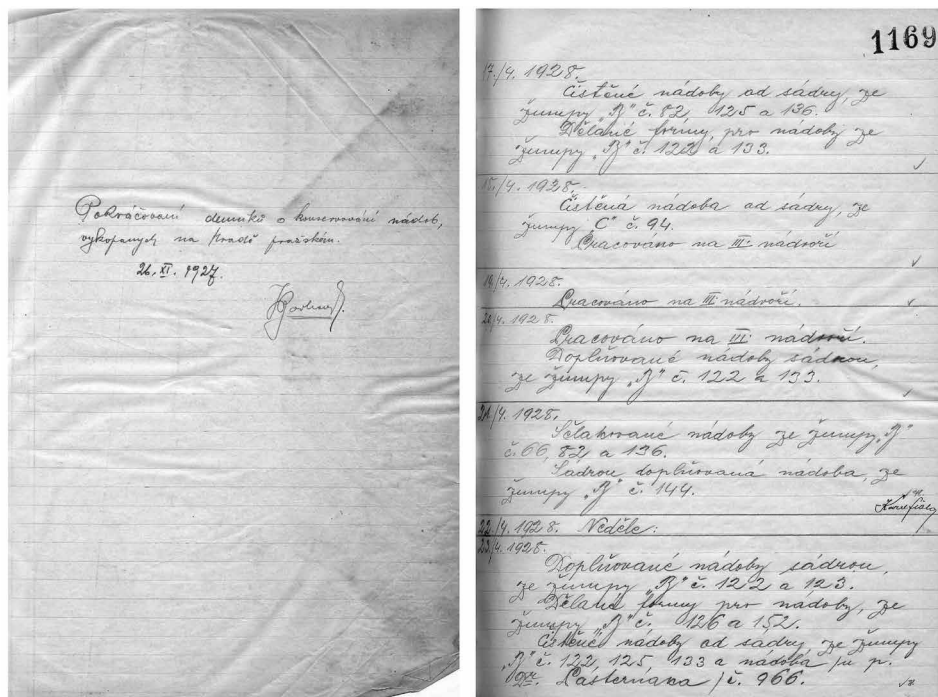 Pokračování denníku o konservování nádob,
vykopaných na hradě pražském.
26. XI. 1927.
1169
17./4. 1928.
Čistěné nádoby od sádry, ze
žumpy „B" č. 82, 125 a 136.
Dělané formy, pro nádoby ze
žumpy „B" č. 122 a 133.
18./4. 1928.
Čistěná nádoba od sádry, ze
žumpy C" č. 94.
Pracováno na III. nádvoří
19./4. 1928.
Pracováno na III. nádvoří.
20./4. 1928.
Pracováno na III. nádvoří.
Doplňované nádoby sádrou,
ze žumpy „B" č. 122 a 133.
21./4. 1928.
Šelakované nádoby ze žumpy „B"
č. 66, 82 a 136.
Sádrou doplňovaná nádoba, ze
žumpy „B" č. 144.
Karel Fiala
22./4. 1928. Neděle:
23./4. 1928.
Doplňované nádoby sádrou,
ze žumpy „B" č. 122 a 123.
Dělané formy pro nádoby, ze
žumpy „B" č. 126 a 152.
Čistěné nádoby od sádry, ze žumpy
„B" č. 122, 125, 133 a nádoba /u p.
Pasternaka / č. 966.